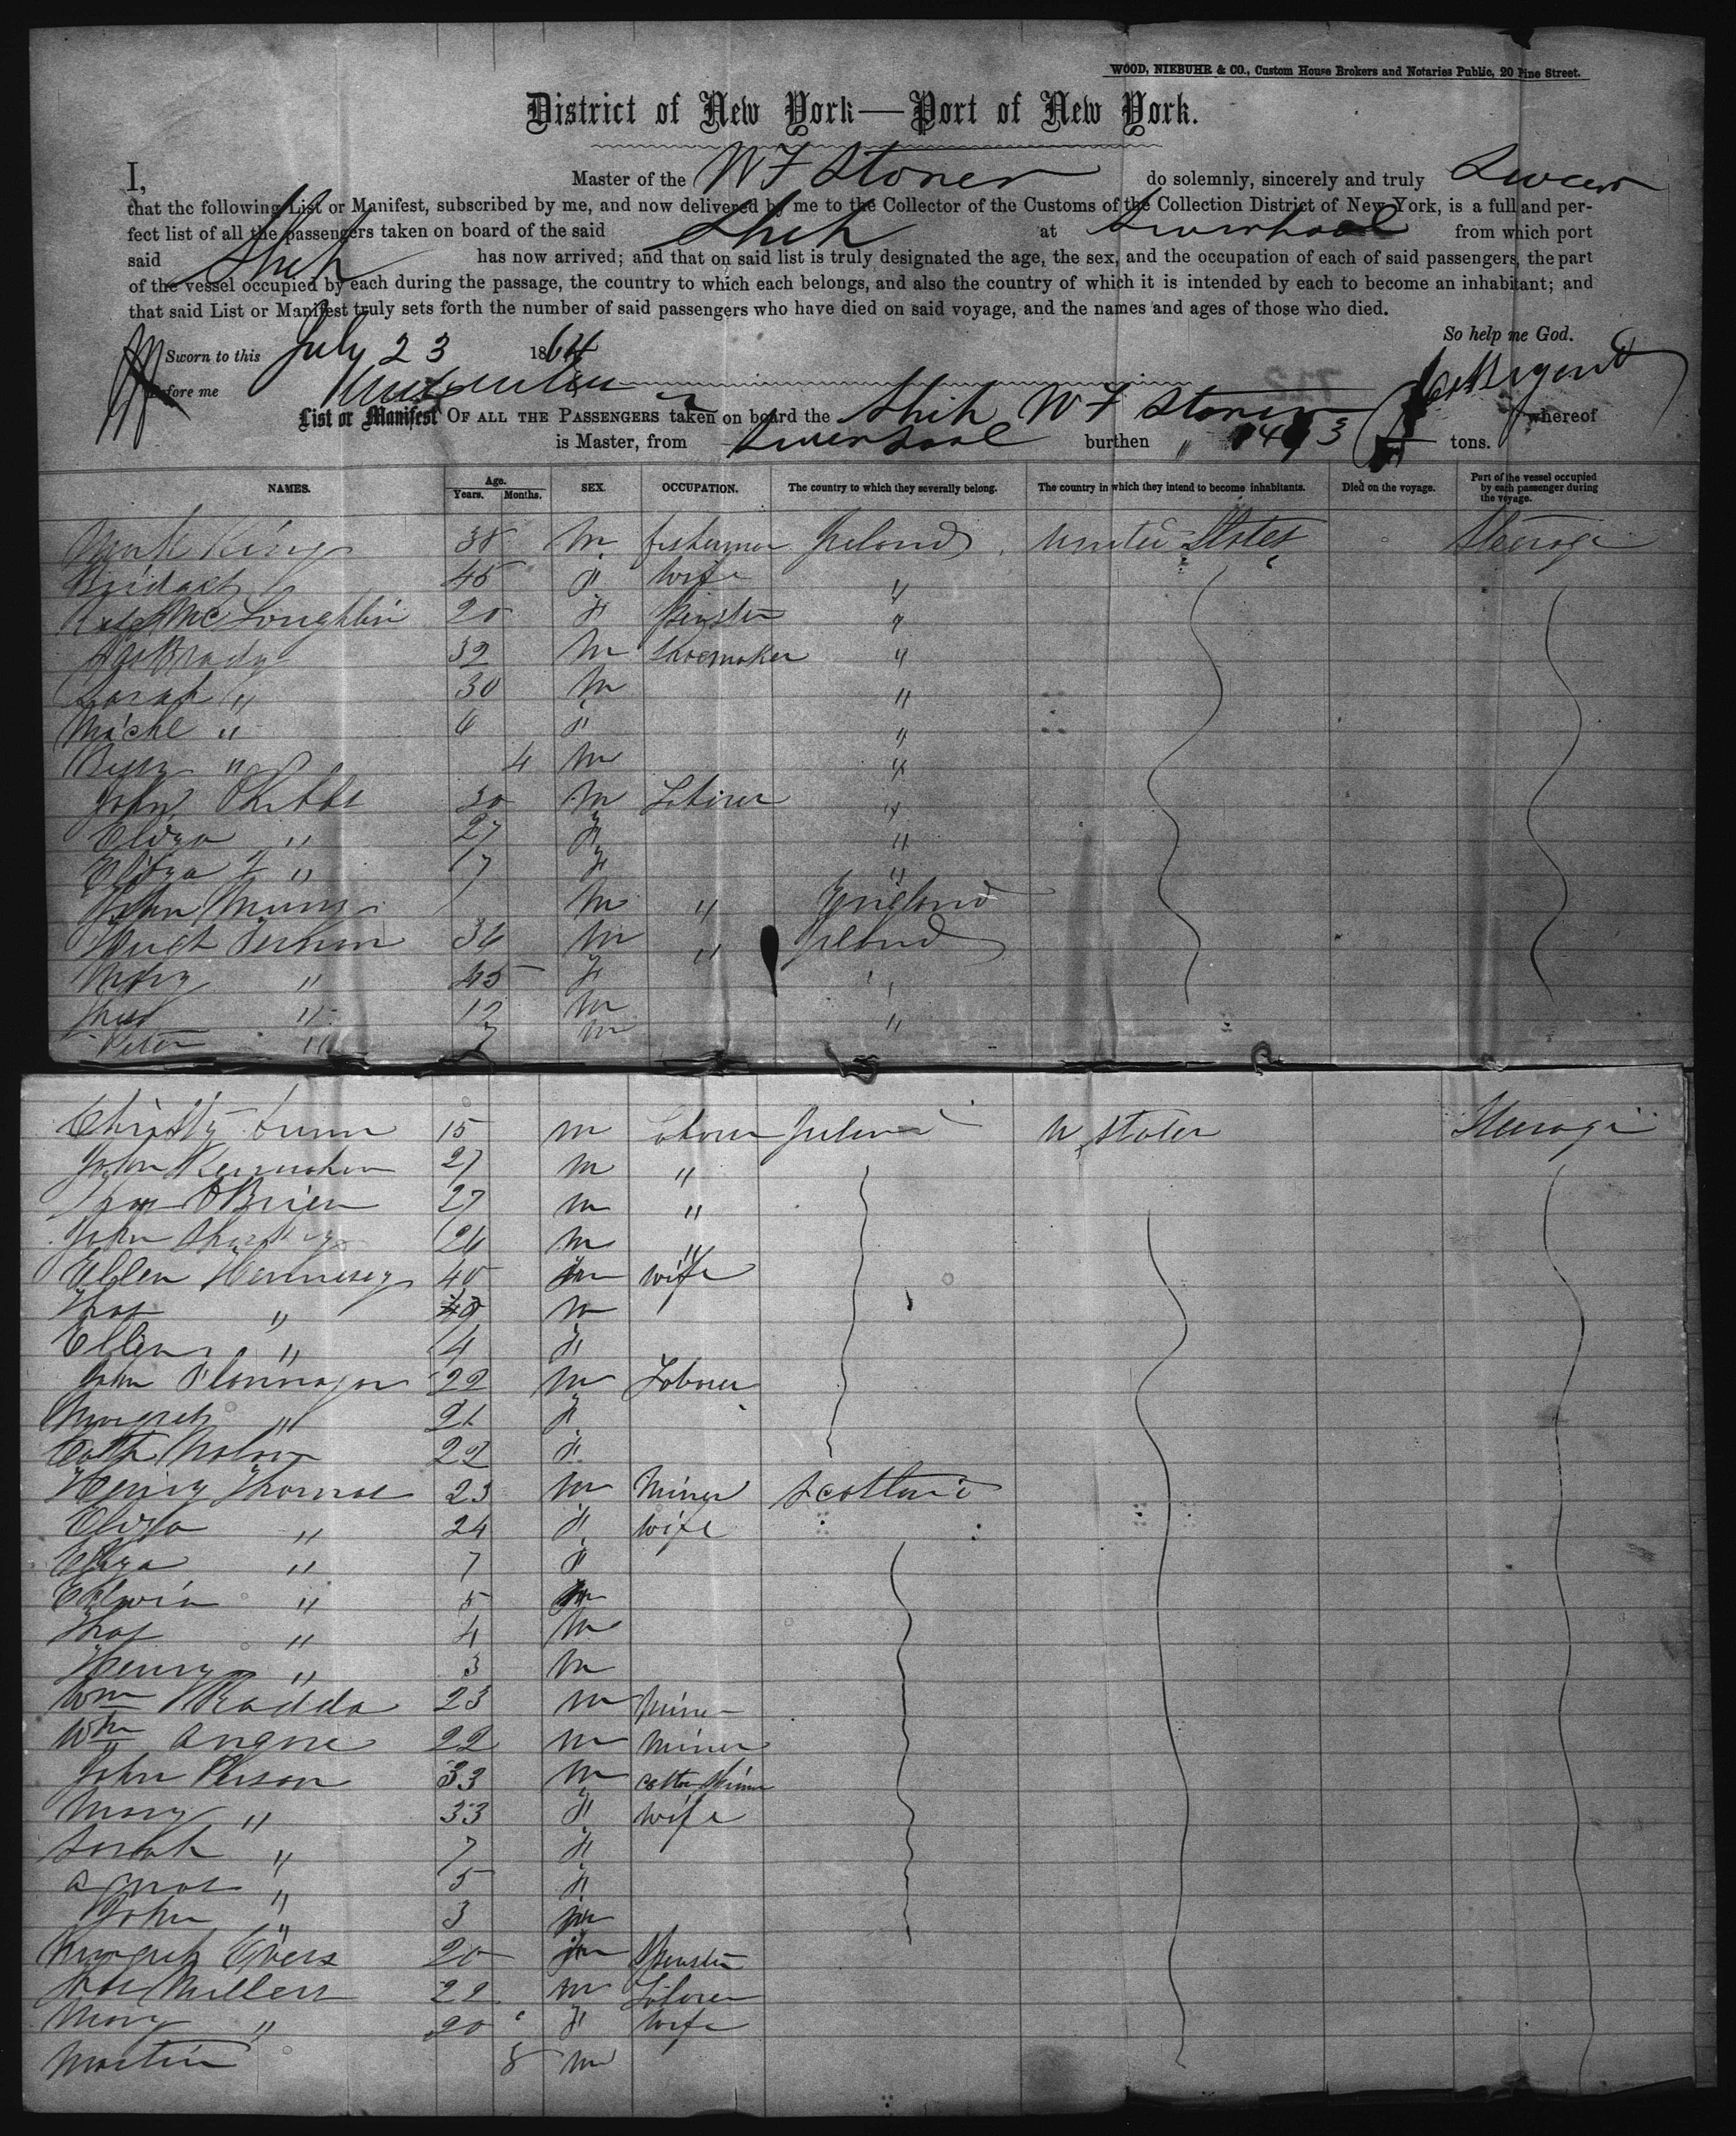 WOOD, NIEBUHR & CO., Custom House Brokers and Notaries Public, 20 Pine Street.
District of New York—Port of New York.
I, Master of the W F Storer do solemnly, sincerely and truly Swear
that the following List or Manifest, subscribed by me, and now delivered by me to the Collector of the Customs of the Collection District of New York, is a full and per-
fect list of all the passengers taken on board of the said Ship at Liverpool from which port
said Ship has now arrived; and that on said list is truly designated the age, the sex, and the occupation of each of said passengers, the part
of the vessel occupied by each during the passage, the country to which each belongs, and also the country of which it is intended by each to become an inhabitant; and
that said List or Manifest truly sets forth the number of said passengers who have died on said voyage, and the names and ages of those who died.
So help me God.
Sworn to this July 23 1864
Before me
List or Manifest OF ALL THE PASSENGERS taken on board the Ship W F Storer whereof
is Master, from Liverpool burthen " tons.
NAMES. Age. Years. Months. SEX. OCCUPATION. The country to which they severally belong. The country in which they intend to become inhabitants. Died on the voyage. Part of the vessel occupied by each passenger during the voyage.
Mark King 38 M fisherman Ireland United States Steerage
Bridget " 45 F Wife "
McLoughlin 20 F Spinster "
Brady 32 M Shoemaker "
Sarah " 30 M "
Michl " 6 F "
" 4 M "
John 30 M Laborer "
Eliza " 27 F "
Eliza " F "
John M " England
Hugh 36 M " Ireland
Mary " 45 F "
" 12 M
Peter " 7 M "
Christy Dunn 15 M Laborer Ireland U States Steerage
John 27 M "
O'Brien 27 M "
John 26 M "
Ellen Hennesey 40 wife
Thos " M
Ellen " 14 F
John Flannagan 22 M Laborer
Margreth " 21 F
Cath Nolan 22 F
Henry Thomas 23 M Miner Scotland
Eliza " 24 F wife
Eliza " 7 F
Edwin " 5 M
Thos " 4 M
Henry " 3 M
Wm Rodda 23 M Miner
Wm Angove 22 M Miner
John 33 M
Mary " 33 F wife
Sarah " 7 F
Agnes " 5 F
John " 3 M
Margreth Evers 20 Spinster
Millers 22 M Laborer
Mary " 20 F Wife
Martin 8 M